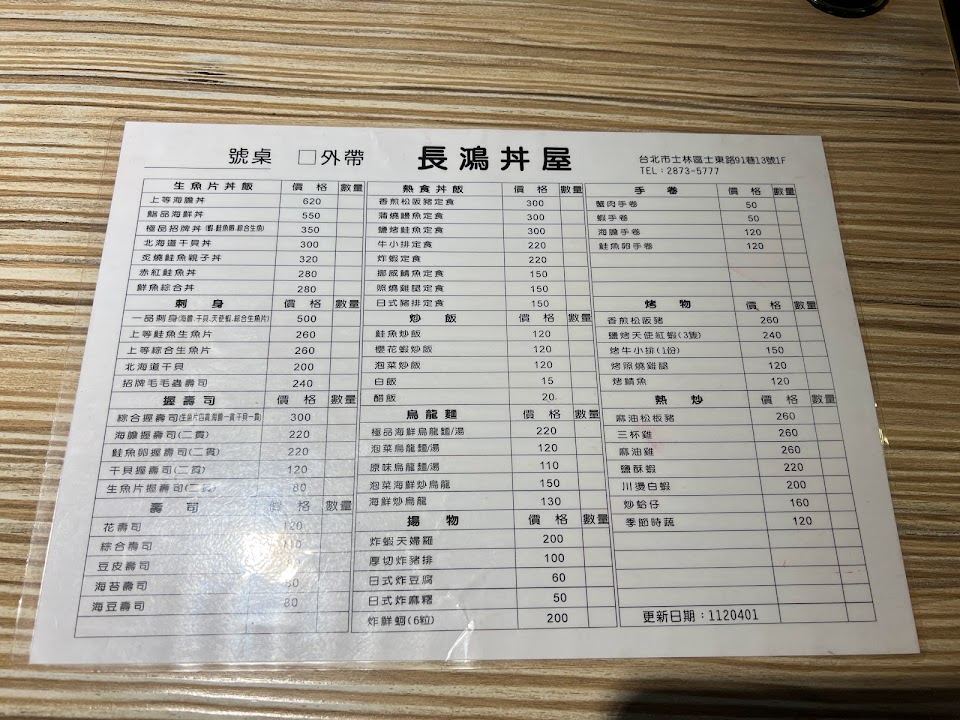 號桌 □外帶 長鴻丼屋
台北市士林區士東路91巷13號1F
TEL：2873-5777
生魚片丼飯 價格 數量
上等海膽丼 620
鮨品海鮮丼 550
極品招牌丼(蝦.鮭魚卵.綜合生魚) 350
北海道干貝丼 300
炙燒鮭魚親子丼 320
赤紅鮭魚丼 280
鮮魚綜合丼 280
刺身 價格 數量
一品刺身(海膽.干貝.天使蝦.綜合生魚片) 500
上等鮭魚生魚片 260
上等綜合生魚片 260
北海道干貝 200
招牌毛毛蟲壽司 240
握壽司 價格 數量
綜合握壽司(生魚片四貫,海膽一貫,干貝一貫) 300
海膽握壽司(二貫) 220
鮭魚卵握壽司(二貫) 220
干貝握壽司(二貫) 120
生魚片握壽司(二貫) 80
壽司 價格 數量
花壽司 120
綜合壽司 110
豆皮壽司
海苔壽司 80
海豆壽司 80
熱食丼飯 價格 數量
香煎松阪豬定食 300
蒲燒鰻魚定食 300
鹽烤鮭魚定食 300
牛小排定食 220
炸蝦定食 220
挪威鯖魚定食 150
照燒雞腿定食 150
日式豬排定食 150
炒飯 價格 數量
鮭魚炒飯 120
櫻花蝦炒飯 120
泡菜炒飯 120
白飯 15
醋飯 20
烏龍麵 價格 數量
極品海鮮烏龍麵/湯 220
泡菜烏龍麵/湯 120
原味烏龍麵/湯 110
泡菜海鮮炒烏龍 150
海鮮炒烏龍 130
揚物 價格 數量
炸蝦天婦羅 200
厚切炸豬排 100
日式炸豆腐 60
日式炸麻糬 50
炸鮮蚵(6粒) 200
手卷 價格 數量
蟹肉手卷 50
蝦手卷 50
海膽手卷 120
鮭魚卵手卷 120
烤物 價格 數量
香煎松阪豬 260
鹽烤天使紅蝦(3隻) 240
烤牛小排(1份) 150
烤照燒雞腿 120
烤鯖魚 120
熱炒 價格 數量
麻油松板豬 260
三杯雞 260
麻油雞 260
鹽酥蝦 220
川燙白蝦 200
炒蛤仔 160
季節時蔬 120
更新日期：1120401